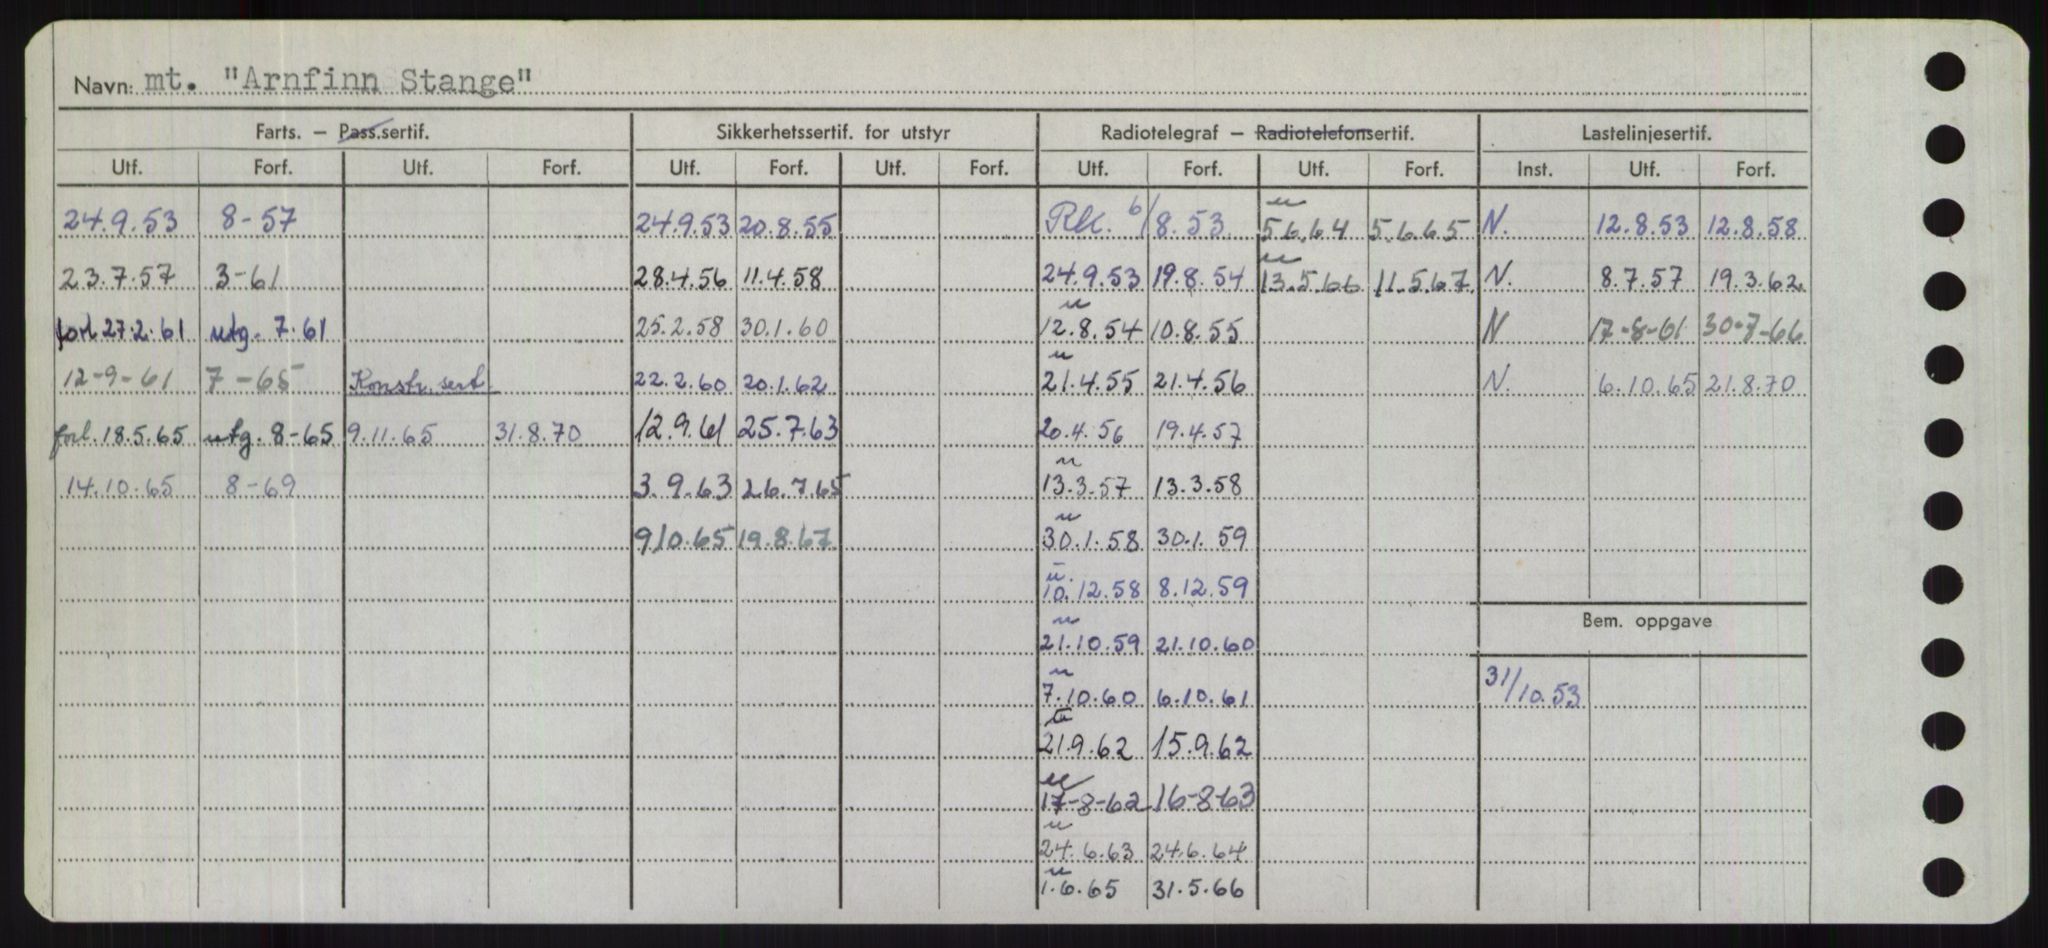 Navn: mt. "Arnfinn Stange"
Farts. – Pass.sertif. Sikkerhetssertif. for utstyr Radiotelegraf – Radiotelefonsertif. Lastelinjesertif.
Utf. Forf. Utf. Forf. Utf. Forf. Utf. Forf. Utf. Forf. Utf. Forf. Inst. Utf. Forf.
24.9.53 8-57 24.9.53 20.8.55 RK. 6/8.53 u 5.6.64 5.6.65 N. 12.8.53 12.8.58
23.7.57 3-61 28.4.56 11.4.58 24.9.53 19.8.54 u 13.5.66 11.5.67 N. 8.7.57 19.3.62
forl 27.2.61 utg. 7.61 25.2.58 30.1.60 u 12.8.54 10.8.55 N 17-8-61 30-7-66
12-9-61 7-65 Konstr. sert. 22.2.60 20.1.62 u 21.4.55 21.4.56 N. 6.10.65 21.8.70
forl. 18.5.65 utg. 8-65 9.11.65 31.8.70 12.9.61 25.7.63 20.4.56 19.4.57
14.10.65 8-69 3.9.63 26.7.65 u 13.3.57 13.3.58
9/10.65 19.8.67 u 30.1.58 30.1.59
u. 10.12.58 8.12.59
u 21.10.59 21.10.60
Bem. oppgave
u 7.10.60 6.10.61 31/10.53
u 21.9.62 15.9.62
u 17-8-62 16-8-63
u 24.6.63 24.6.64
u 1.6.65 31.5.66